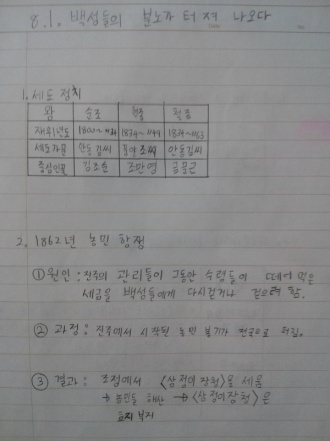 8.1. 백성들의 분노가 터져 나오다
1. 세도 정치
왕 순조 헌종 철종
재위년도
세도가문 안동김씨 풍양조씨 안동김씨
중심인물 김조순 조만영 김문근
2. 1862년 농민 항쟁
① 원인 : 진주의 관리들이 그동안 수령들이 떼어 먹은
세금을 백성들에게 다시걷거나 걷으려 함.
② 과정 : 진주에서 시작된 농민 봉기가 전국으로 퍼짐.
③ 결과 : 조정에서 〈삼정이정청〉을 세움
→ 농민들 해산 → 〈삼정이정청〉은
효과 부족